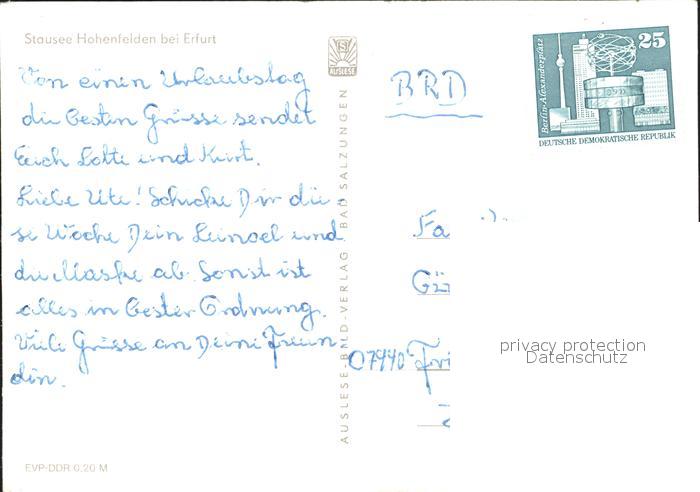 Stausee Hohenfelden bei Erfurt
Von einen Urlaubstag
die besten Grüsse sendet
Euch Lotte und Kurt.
Liebe Ute! Schicke Dir die-
se Woche Dein Leinoel und
die Maske ab. Sonst ist
alles in bester Ordnung.
Viele Grüsse an Deine Freun
din.
EVP-DDR 0,20 M
AUSLESE
AUSLESE-BILD-VERLAG BAD SALZUNGEN
BRD
Berlin-Alexanderplatz
25
DEUTSCHE DEMOKRATISCHE REPUBLIK
Fa
Gü
07440 Fri
privacy protection
Datenschutz